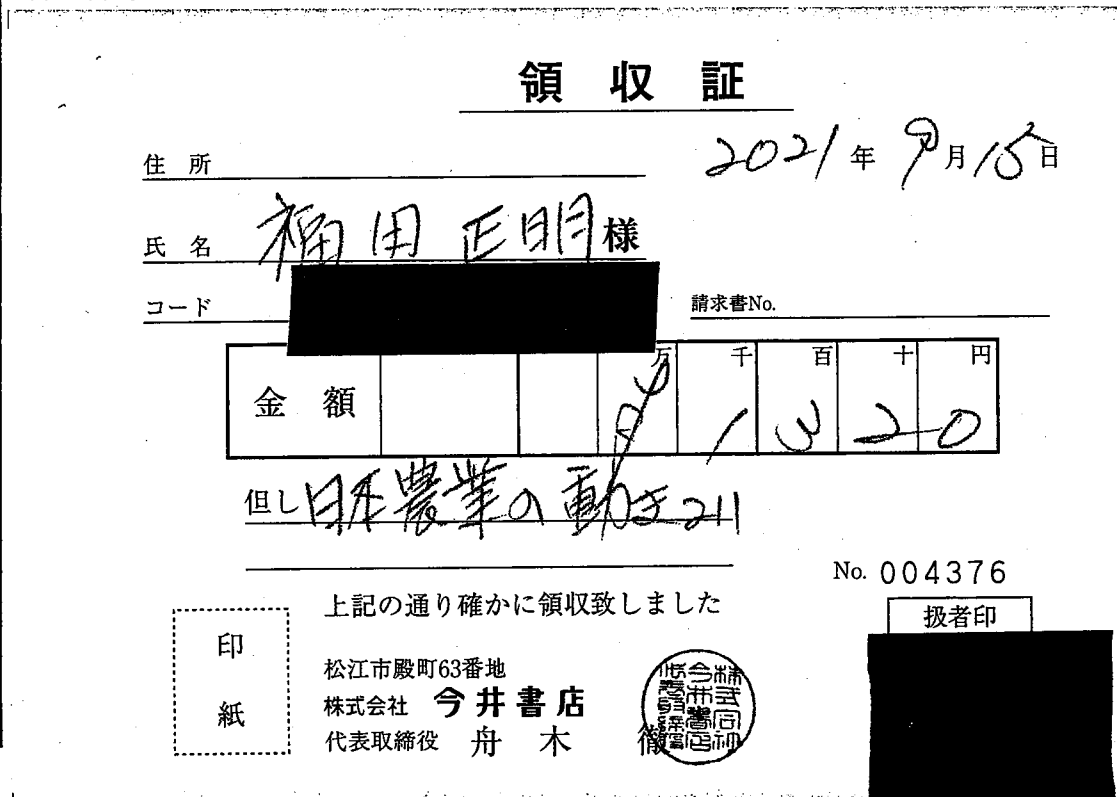 領収証
2021年 9月15日
住所
氏名 福田 正明 様
コード
請求書No.
金額 万 千 百 十 円
1 3 2 0
但し 日本農業の動き211
No. 004376
上記の通り確かに領収致しました
扱者印
印紙
松江市殿町63番地
株式会社 今井書店
代表取締役 舟木 徹